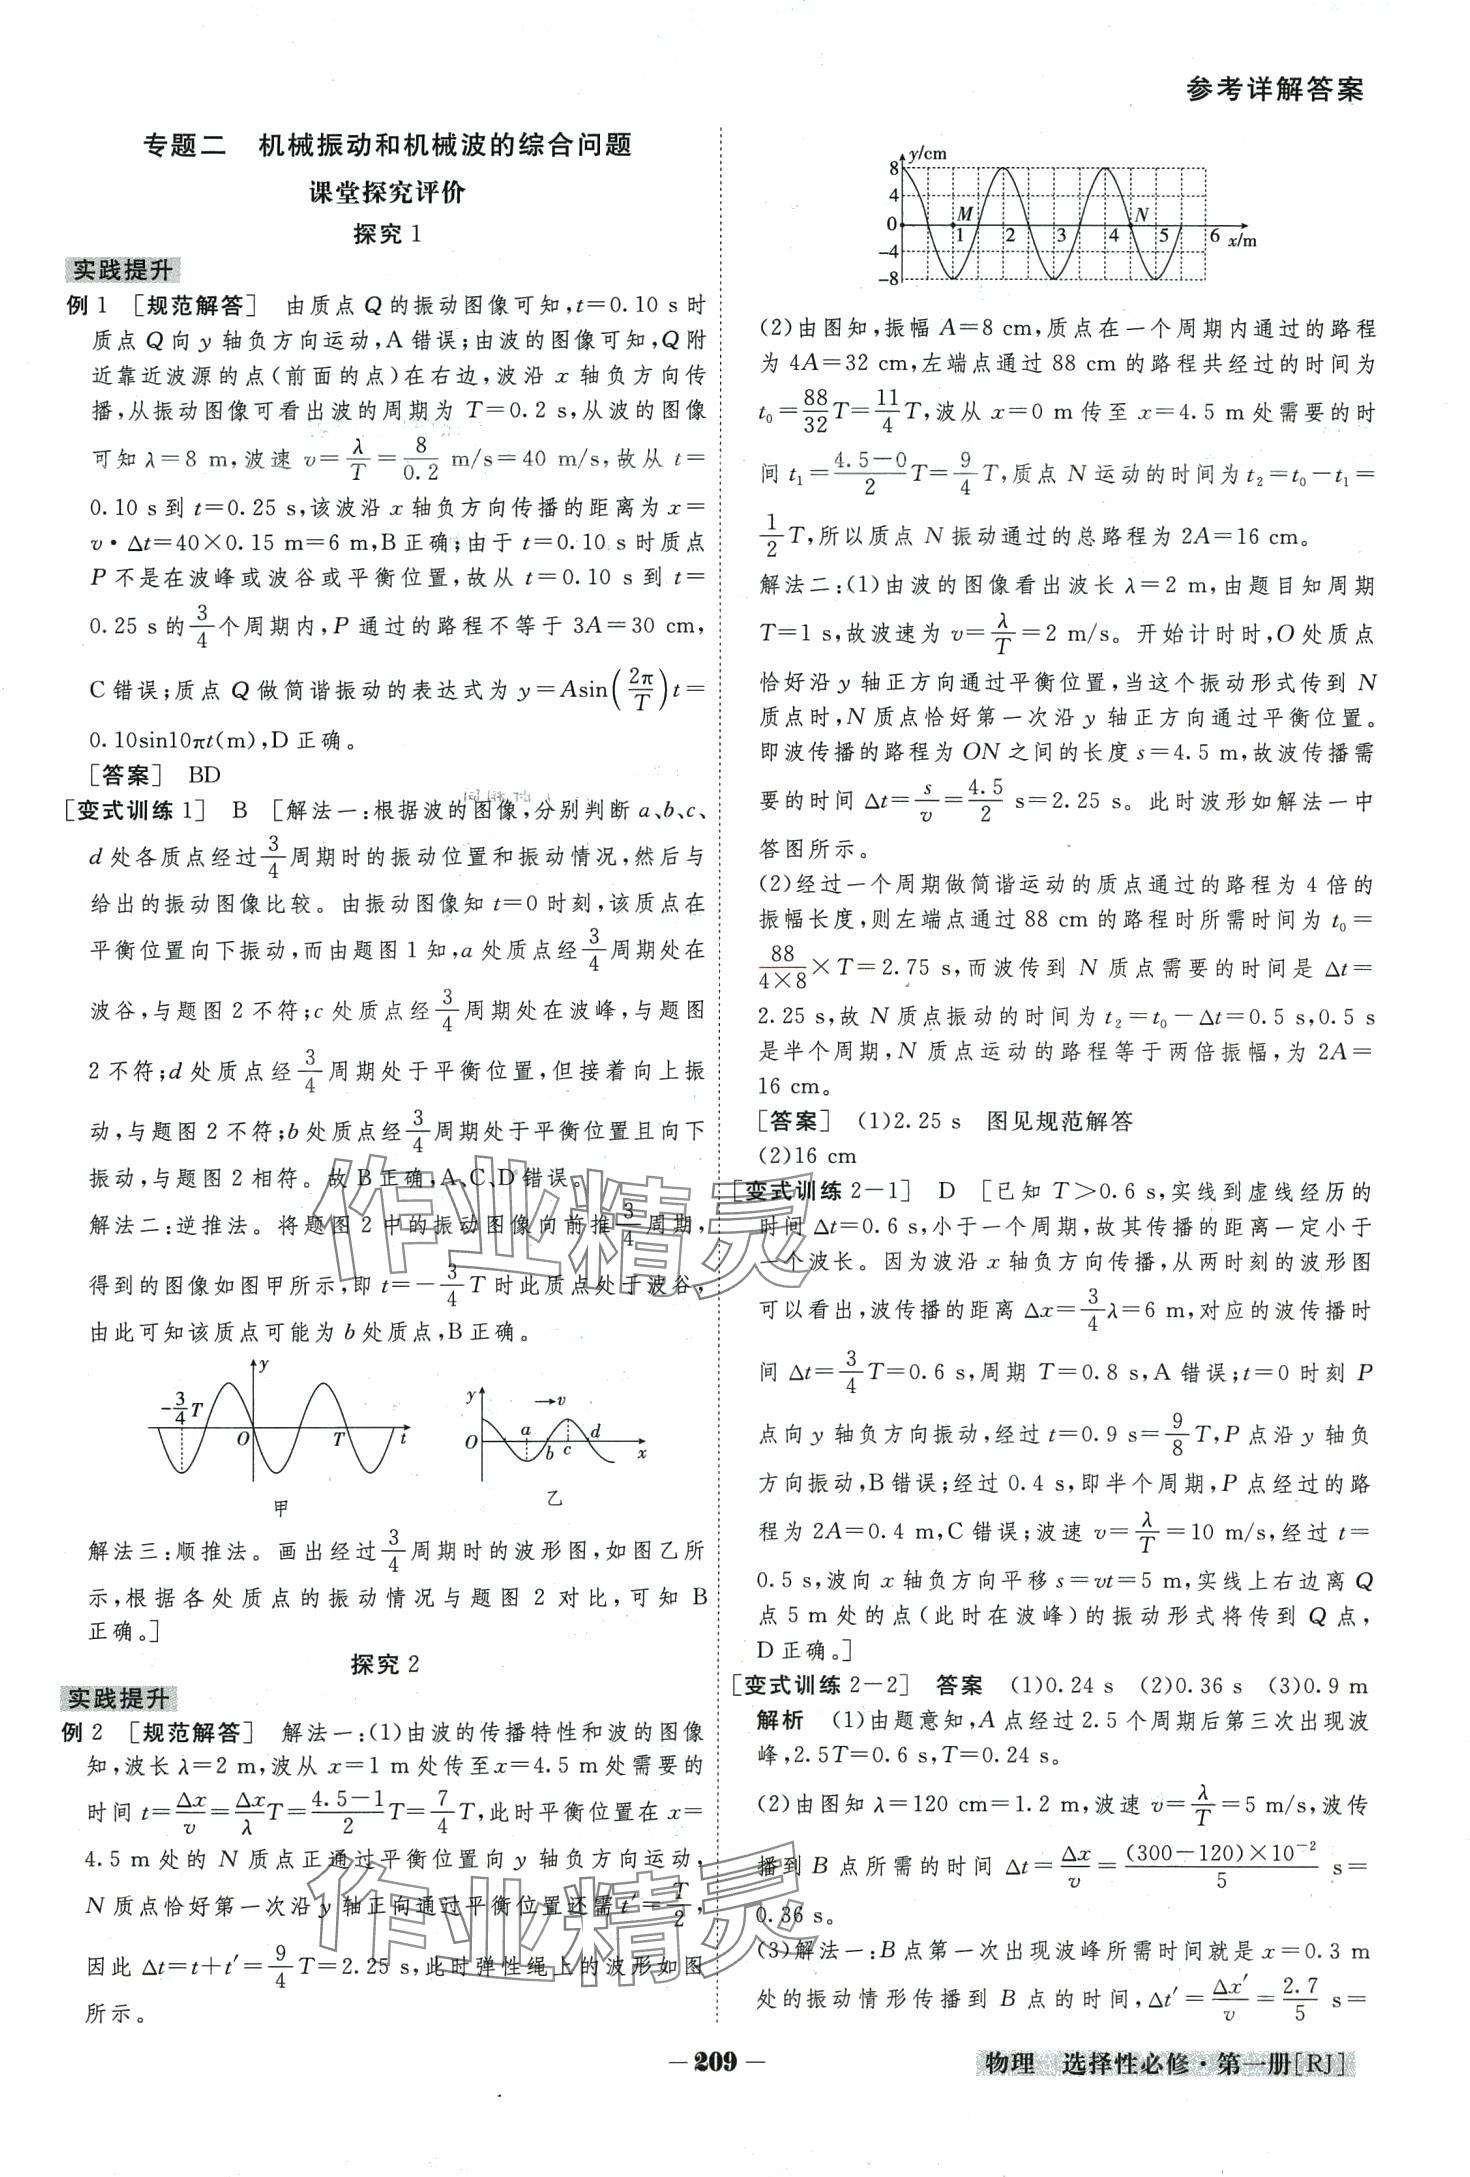 参考详解答案
专题二 机械振动和机械波的综合问题
课堂探究评价
探究1
实践提升
例1 [规范解答] 由质点Q的振动图像可知,t=0.10 s时
质点Q向y轴负方向运动,A错误;由波的图像可知,Q附
近靠近波源的点(前面的点)在右边,波沿x轴负方向传
播,从振动图像可看出波的周期为T=0.2 s,从波的图像
可知λ=8 m,波速v=λ/T=8/0.2 m/s=40 m/s,故从t=
0.10 s到t=0.25 s,该波沿x轴负方向传播的距离为x=
v·Δt=40×0.15 m=6 m,B正确;由于t=0.10 s时质点
P不是在波峰或波谷或平衡位置,故从t=0.10 s到t=
0.25 s的3/4个周期内,P通过的路程不等于3A=30 cm,
C错误;质点Q做简谐振动的表达式为y=Asin(2π/T)t=
0.10sin10πt(m),D正确。
[答案] BD
[变式训练1] B [解法一:根据波的图像,分别判断a、b、c、
d处各质点经过3/4周期时的振动位置和振动情况,然后与
给出的振动图像比较。由振动图像知t=0时刻,该质点在
平衡位置向下振动,而由题图1知,a处质点经3/4周期处在
波谷,与题图2不符;c处质点经3/4周期处在波峰,与题图
2不符;d处质点经3/4周期处于平衡位置,但接着向上振
动,与题图2不符;b处质点经3/4周期处于平衡位置且向下
振动,与题图2相符。故B正确,A、C、D错误。
解法二:逆推法。将题图2中的振动图像向前推3/4周期,
得到的图像如图甲所示,即t=-3/4T时此质点处于波谷,
由此可知该质点可能为b处质点,B正确。
y
-3/4T
O
T
t
甲
y
v
O
a
b
c
d
x
乙
解法三:顺推法。画出经过3/4周期时的波形图,如图乙所
示,根据各处质点的振动情况与题图2对比,可知B
正确。]
探究2
实践提升
例2 [规范解答] 解法一:(1)由波的传播特性和波的图像
知,波长λ=2 m,波从x=1 m处传至x=4.5 m处需要的
时间t=Δx/v=Δx/λT=4.5-1/2T=7/4T,此时平衡位置在x=
4.5 m处的N质点正通过平衡位置向y轴负方向运动,
N质点恰好第一次沿y轴正向通过平衡位置还需t′=T/2,
因此Δt=t+t′=9/4T=2.25 s,此时弹性绳上的波形如图
所示。
y/cm
8
4
0
-4
-8
M
N
1 2 3 4 5 6 x/m
(2)由图知,振幅A=8 cm,质点在一个周期内通过的路程
为4A=32 cm,左端点通过88 cm的路程共经过的时间为
t₀=88/32T=11/4T,波从x=0 m传至x=4.5 m处需要的时
间t₁=4.5-0/2T=9/4T,质点N运动的时间为t₂=t₀-t₁=
1/2T,所以质点N振动的总路程为2A=16 cm。
解法二:(1)由波的图像看出波长λ=2 m,由题目知周期
T=1 s,故波速为v=λ/T=2 m/s。开始计时时,O处质点
恰好沿y轴正方向通过平衡位置,当这个振动形式传到N
质点时,N质点恰好第一次沿y轴正方向通过平衡位置。
即波传播的路程为ON之间的长度s=4.5 m,故波传播需
要的时间Δt=s/v=4.5/2 s=2.25 s。此时波形如解法一中
答图所示。
(2)经过一个周期做简谐运动的质点通过的路程为4倍的
振幅长度,则左端点通过88 cm的路程时所需时间为t₀=
88/4×8×T=2.75 s,而波传到N质点需要的时间是Δt=
2.25 s,故N质点振动的时间为t₂=t₀-Δt=0.5 s,0.5 s
是半个周期,N质点运动的路程等于两倍振幅,为2A=
16 cm。
[答案] (1)2.25 s 图见规范解答
(2)16 cm
[变式训练2-1] D [已知T>0.6 s,实线到虚线经历的
时间Δt=0.6 s,小于一个周期,故其传播的距离一定小于
一个波长。因为波沿x轴负方向传播,从两时刻的波形图
可以看出,波传播的距离Δx=3/4λ=6 m,对应的波传播时
间Δt=3/4T=0.6 s,周期T=0.8 s,A错误;t=0时刻P
点向y轴负方向振动,经过t=0.9 s=9/8T,P点沿y轴负
方向振动,B错误;经过0.4 s,即半个周期,P点经过的路
程为2A=0.4 m,C错误;波速v=λ/T=10 m/s,经过t=
0.5 s,波向x轴负方向平移s=vt=5 m,实线上右边离Q
点5 m处的点(此时在波峰)的振动形式将传到Q点,
D正确。]
[变式训练2-2] 答案 (1)0.24 s (2)0.36 s (3)0.9 m
解析 (1)由题意知,A点经过2.5个周期后第三次出现波
峰,2.5T=0.6 s,T=0.24 s。
(2)由图知λ=120 cm=1.2 m,波速v=λ/T=5 m/s,波传
播到B点所需的时间Δt=Δx/v=(300-120)×10⁻²/5 s=
0.36 s。
(3)解法一:B点第一次出现波峰所需时间就是x=0.3 m
处的振动情形传播到B点的时间,Δt′=Δx′/v=2.7/5 s=
— 209 —
物理 选择性必修·第一册[RJ]
作业精灵
作业精灵